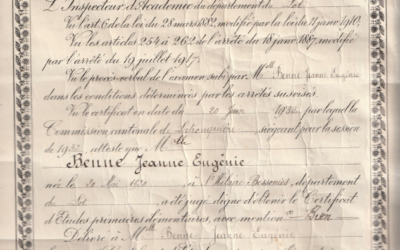 L'Inspecteur d'Académie du département du Lot
Vu l'art. 6 de la loi du 28 mars 1882, modifié par la loi du 11 janv. 1910,
Vu les articles 254 à 262 de l'arrêté du 18 janv. 1887, modifié
par l'arrêté du 19 juillet 1917,
Vu le procès-verbal de l'examen subi par Mlle Benne Jeanne Eugénie
dans les conditions déterminées par les arrêtés susvisés,
Vu le certificat en date du 20 Juin 1932, par lequel la
Commission cantonale de siégeant pour la session
de 1932, atteste que Mlle
Benne Jeanne Eugénie
née le 20 Mai 1920, à St Hilaire Bessonies, département
du Lot, a été jugée digne d'obtenir le Certificat
d'Etudes primaires élémentaires, avec mention Bien
Délivré à Mlle Benne Jeanne Eugénie